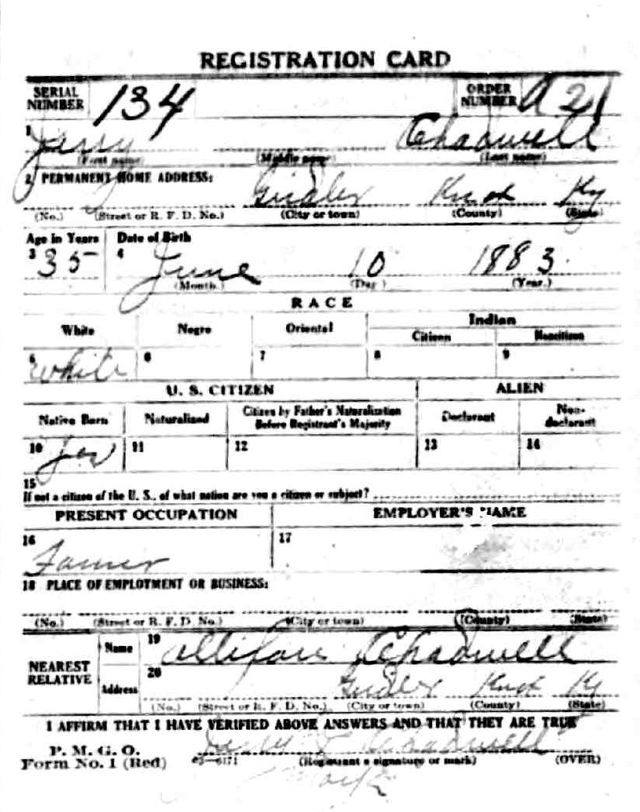 REGISTRATION CARD
SERIAL NUMBER 134 ORDER NUMBER A 21
1 Jerry Chadwell
(First name) (Middle name) (Last name)
2 PERMANENT HOME ADDRESS: Girdler Knox Ky
(No.) (Street or R. F. D. No.) (City or town) (County) (State)
Age in Years Date of Birth
3 35 4 June 10 1883
(Month.) (Day.) (Year.)
RACE
White Negro Oriental Indian
Citizen Noncitizen
5 White 6 7 8 9
U. S. CITIZEN ALIEN
Native Born Naturalized Citizen by Father's Naturalization Before Registrant's Majority Declarant Non-declarant
10 Yes 11 12 13 14
15
If not a citizen of the U. S., of what nation are you a citizen or subject?
PRESENT OCCUPATION EMPLOYER'S NAME
16 Farmer 17
18 PLACE OF EMPLOYMENT OR BUSINESS:
(No.) (Street or R. F. D. No.) (City or town) (County) (State)
NEAREST RELATIVE Name 19 Chadwell
Address 20 Girdler Knox Ky
(No.) (Street or R. F. D. No.) (City or town) (County) (State)
I AFFIRM THAT I HAVE VERIFIED ABOVE ANSWERS AND THAT THEY ARE TRUE
P. M. G. O. Jerry Chadwell
Form No. 1 (Red) 03—6171 (Registrant's signature or mark) (OVER)